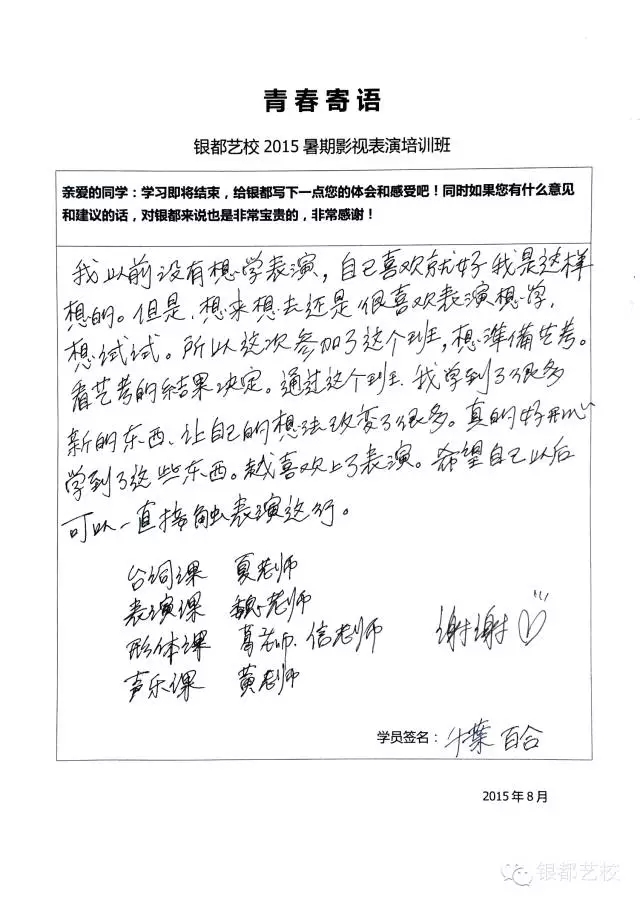 青春寄语
银都艺校 2015 暑期影视表演培训班
亲爱的同学：学习即将结束，给银都写下一点您的体会和感受吧！同时如果您有什么意见
和建议的话，对银都来说也是非常宝贵的，非常感谢！
我以前没有想学表演，自己喜欢就好我是这样
想的。但是、想来想去还是很喜欢表演想学，
想试试。所以这次参加了这个班，想準備艺考。
看艺考的结果决定。通过这个班、我学到了很多
新的东西、让自己的想法改变了很多。真的好开心
学到了这些东西。越喜欢上了表演。希望自己以后
可以一直接触表演这行。
台词课 夏老师
表演课 魏老师
形体课 葛老师、信老师 谢谢
声乐课 黄老师
学员签名：千葉 百合
2015 年 8 月
银都艺校